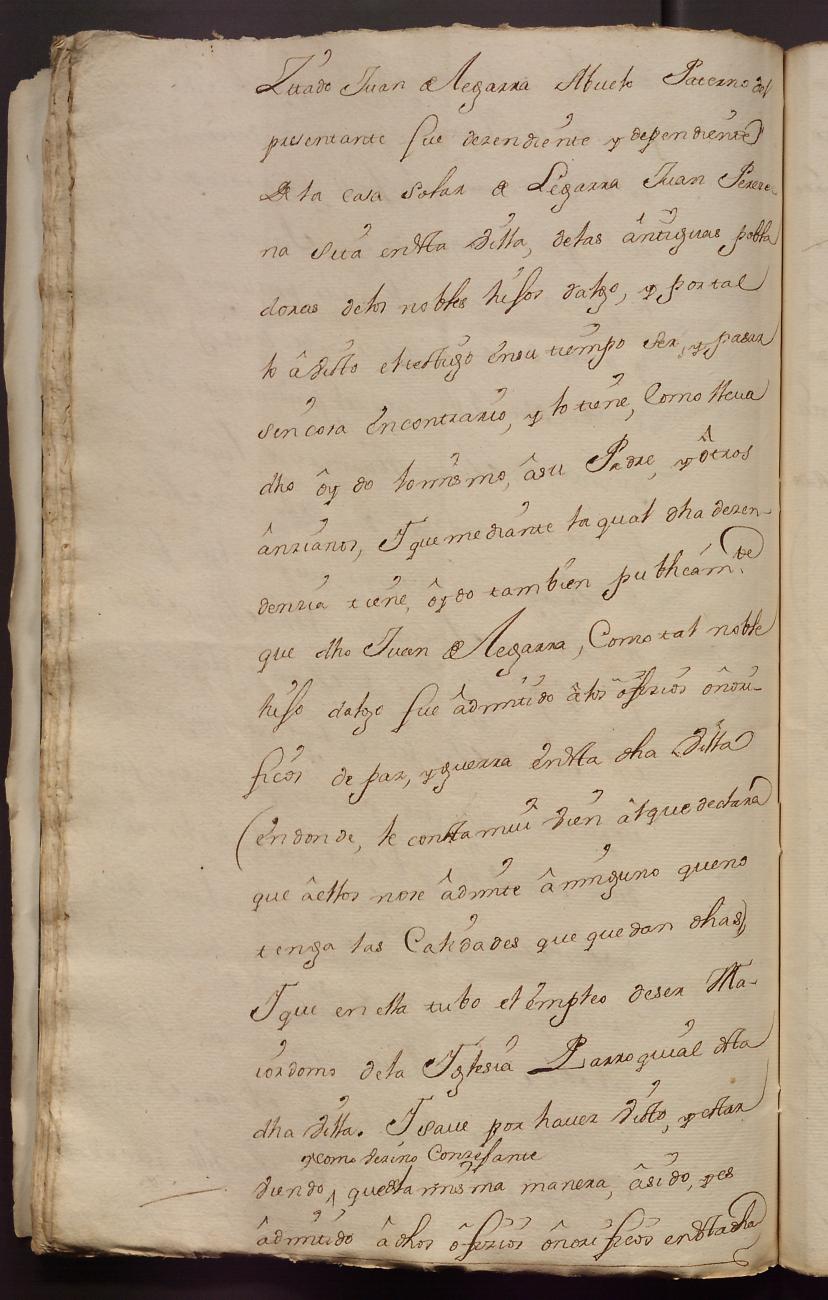 Zitado Juan de Legarra Abuelo Paterno del
presentante fue dezendiente y dependiente
De la casa solar de Legarra Juan Perere-
na sita en esta Villa, de las antiguas pobla
doras de los nobles hijos dalgo, y por tal
lo â visto el testigo en su tiempo ser, y pasar
sin cosa en contrario, y lo tiene, Como lleva
dho ôydo lo mismo, â su Padre, y ôtros
ânzianos, Y que mediante la qual dha dezen-
denzia tiene, ôydo tambien publicamte
que dho Juan de Legarra, Como tal noble
hijo dalgo fue âdmitido â los ôfizios ônori-
ficos de paz, y guerra en esta dha Villa
(en donde, le consta mui bien âl que declara
que âellos no se âdmite â ninguno que no
tenga las Calidades que quedan dhas)
Y que en ella tubo el empleo de ser Ma-
iordomo de la Yglesia Parroquial desta
dha Villa. Y save por haver visto, y estar
y como vezino Conzejante
viendo, que esta misma manera, â sido, y es
âdmitido â dhos ôfizios ônorificos en esta dha